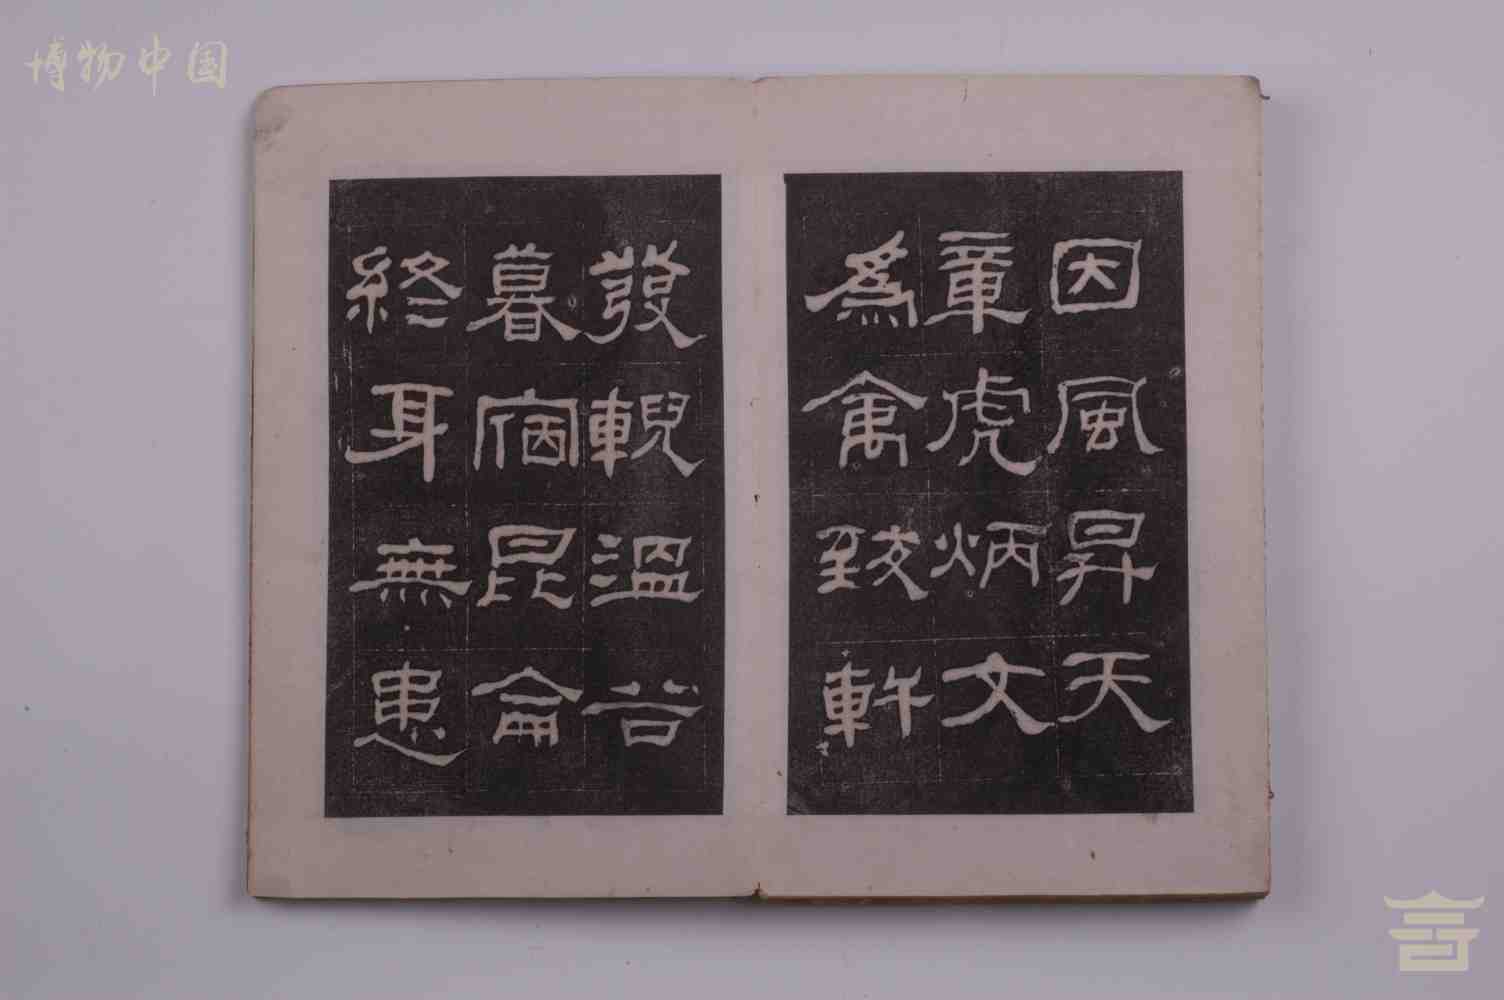 博物中国
因風昇天
章虎炳文
爲禽致軒
發輗溫谷
暮宿昆侖
終耳無患